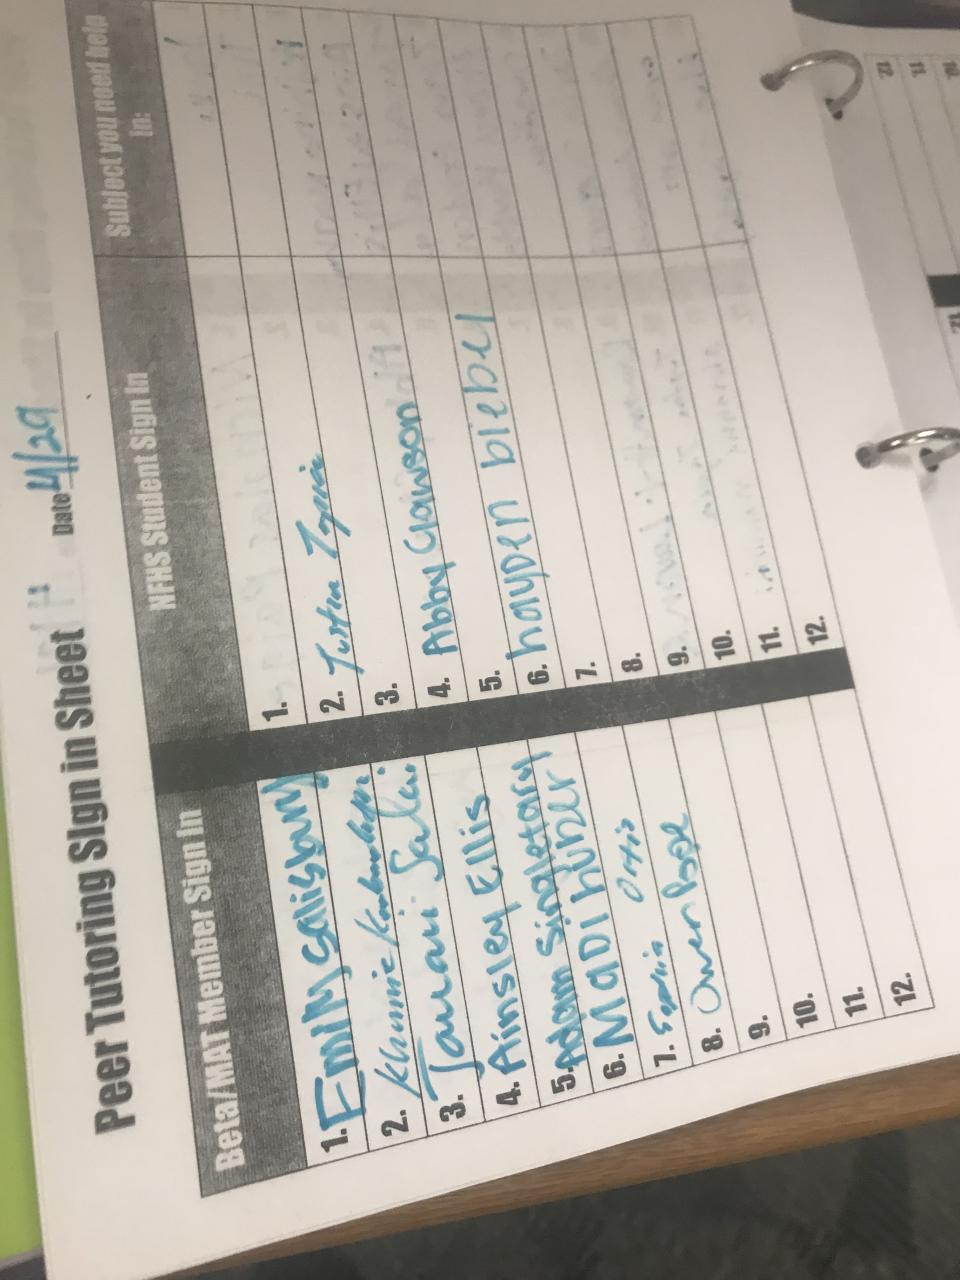 Peer Tutoring Sign in Sheet
Date 4/29
Beta/MAT Member Sign In
NFHS Student Sign In
Subject you need help in:
1. Emily Salisbury
2.
3. Jamari
4. Ainsley Ellis
5. Adam Singletary
6. Madi huber
7. Ortis
8. Owen Pope
9.
10.
11.
12.
1.
2. Justin
3.
4. Abby Clawson
5.
6. hayden bieber
7.
8.
9.
10.
11.
12.
12.
11.
12.